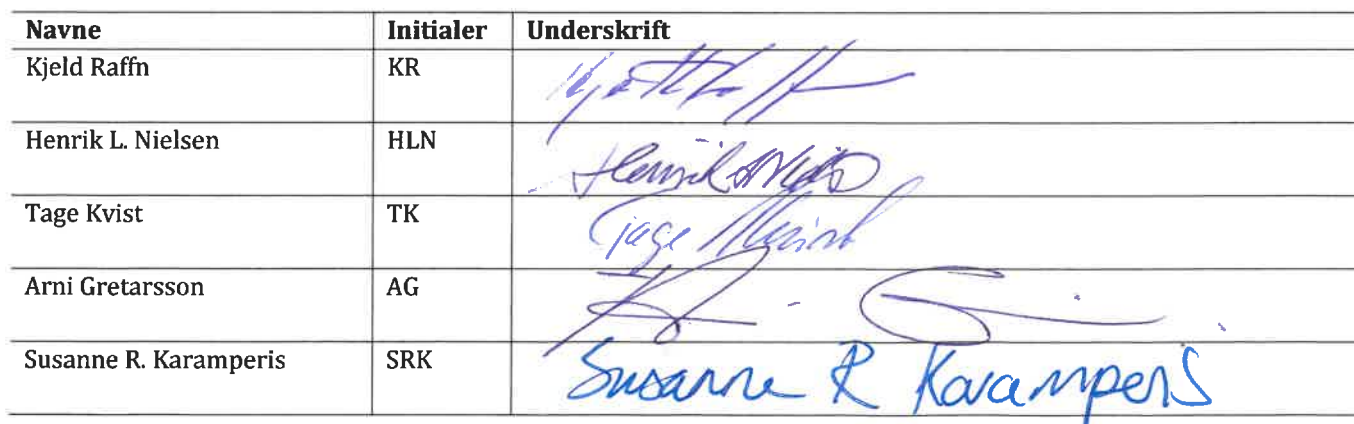 Navne Initialer Underskrift
Kjeld Raffn KR
Henrik L. Nielsen HLN Henrik
Tage Kvist TK Tage
Arni Gretarsson AG
Susanne R. Karamperis SRK Susanne R Karamperis